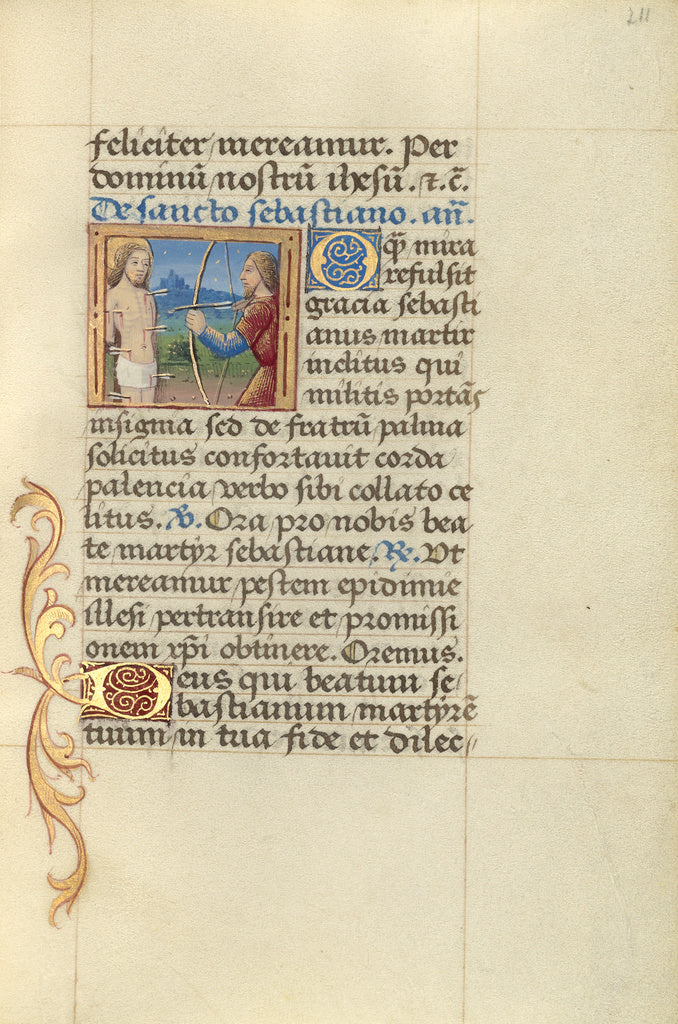 211
feliciter mereamur. Per
dominū nostrū ihesū. τ. c̄.
De sancto sebastiano. añ.
O qp̄ mira
refulsit
gracia sebasti
anus martir
inclitus qui
militis portās
insignia sed de fratrū palma
solicitus confortauit corda
palencia verbo sibi collato ce
litus. V. Ora pro nobis bea
te martyr sebastiane. R. Vt
mereamur pestem epidimie
illesi pertransire et promissi
onem xp̄i obtinere. Oremus.
Deus qui beatum se
bastianum martyrē
tuum in tua fide et dilec